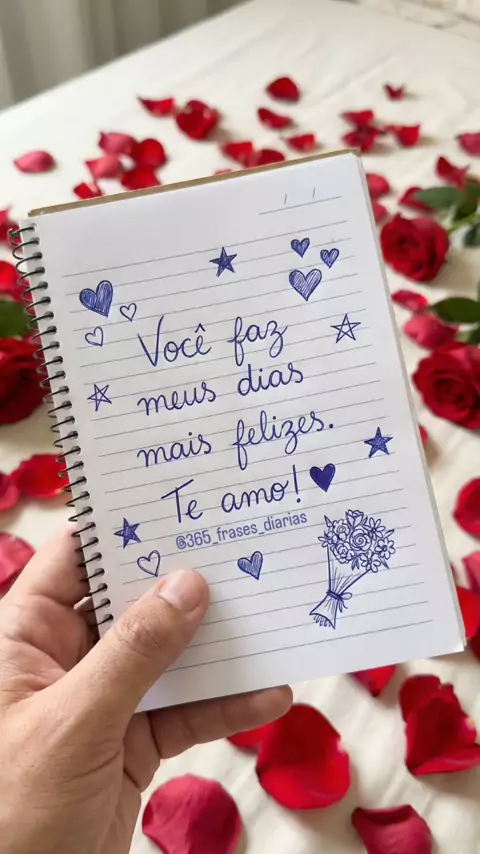 Você faz
meus dias
mais felizes.
Te amo!
@365_frases_diarias